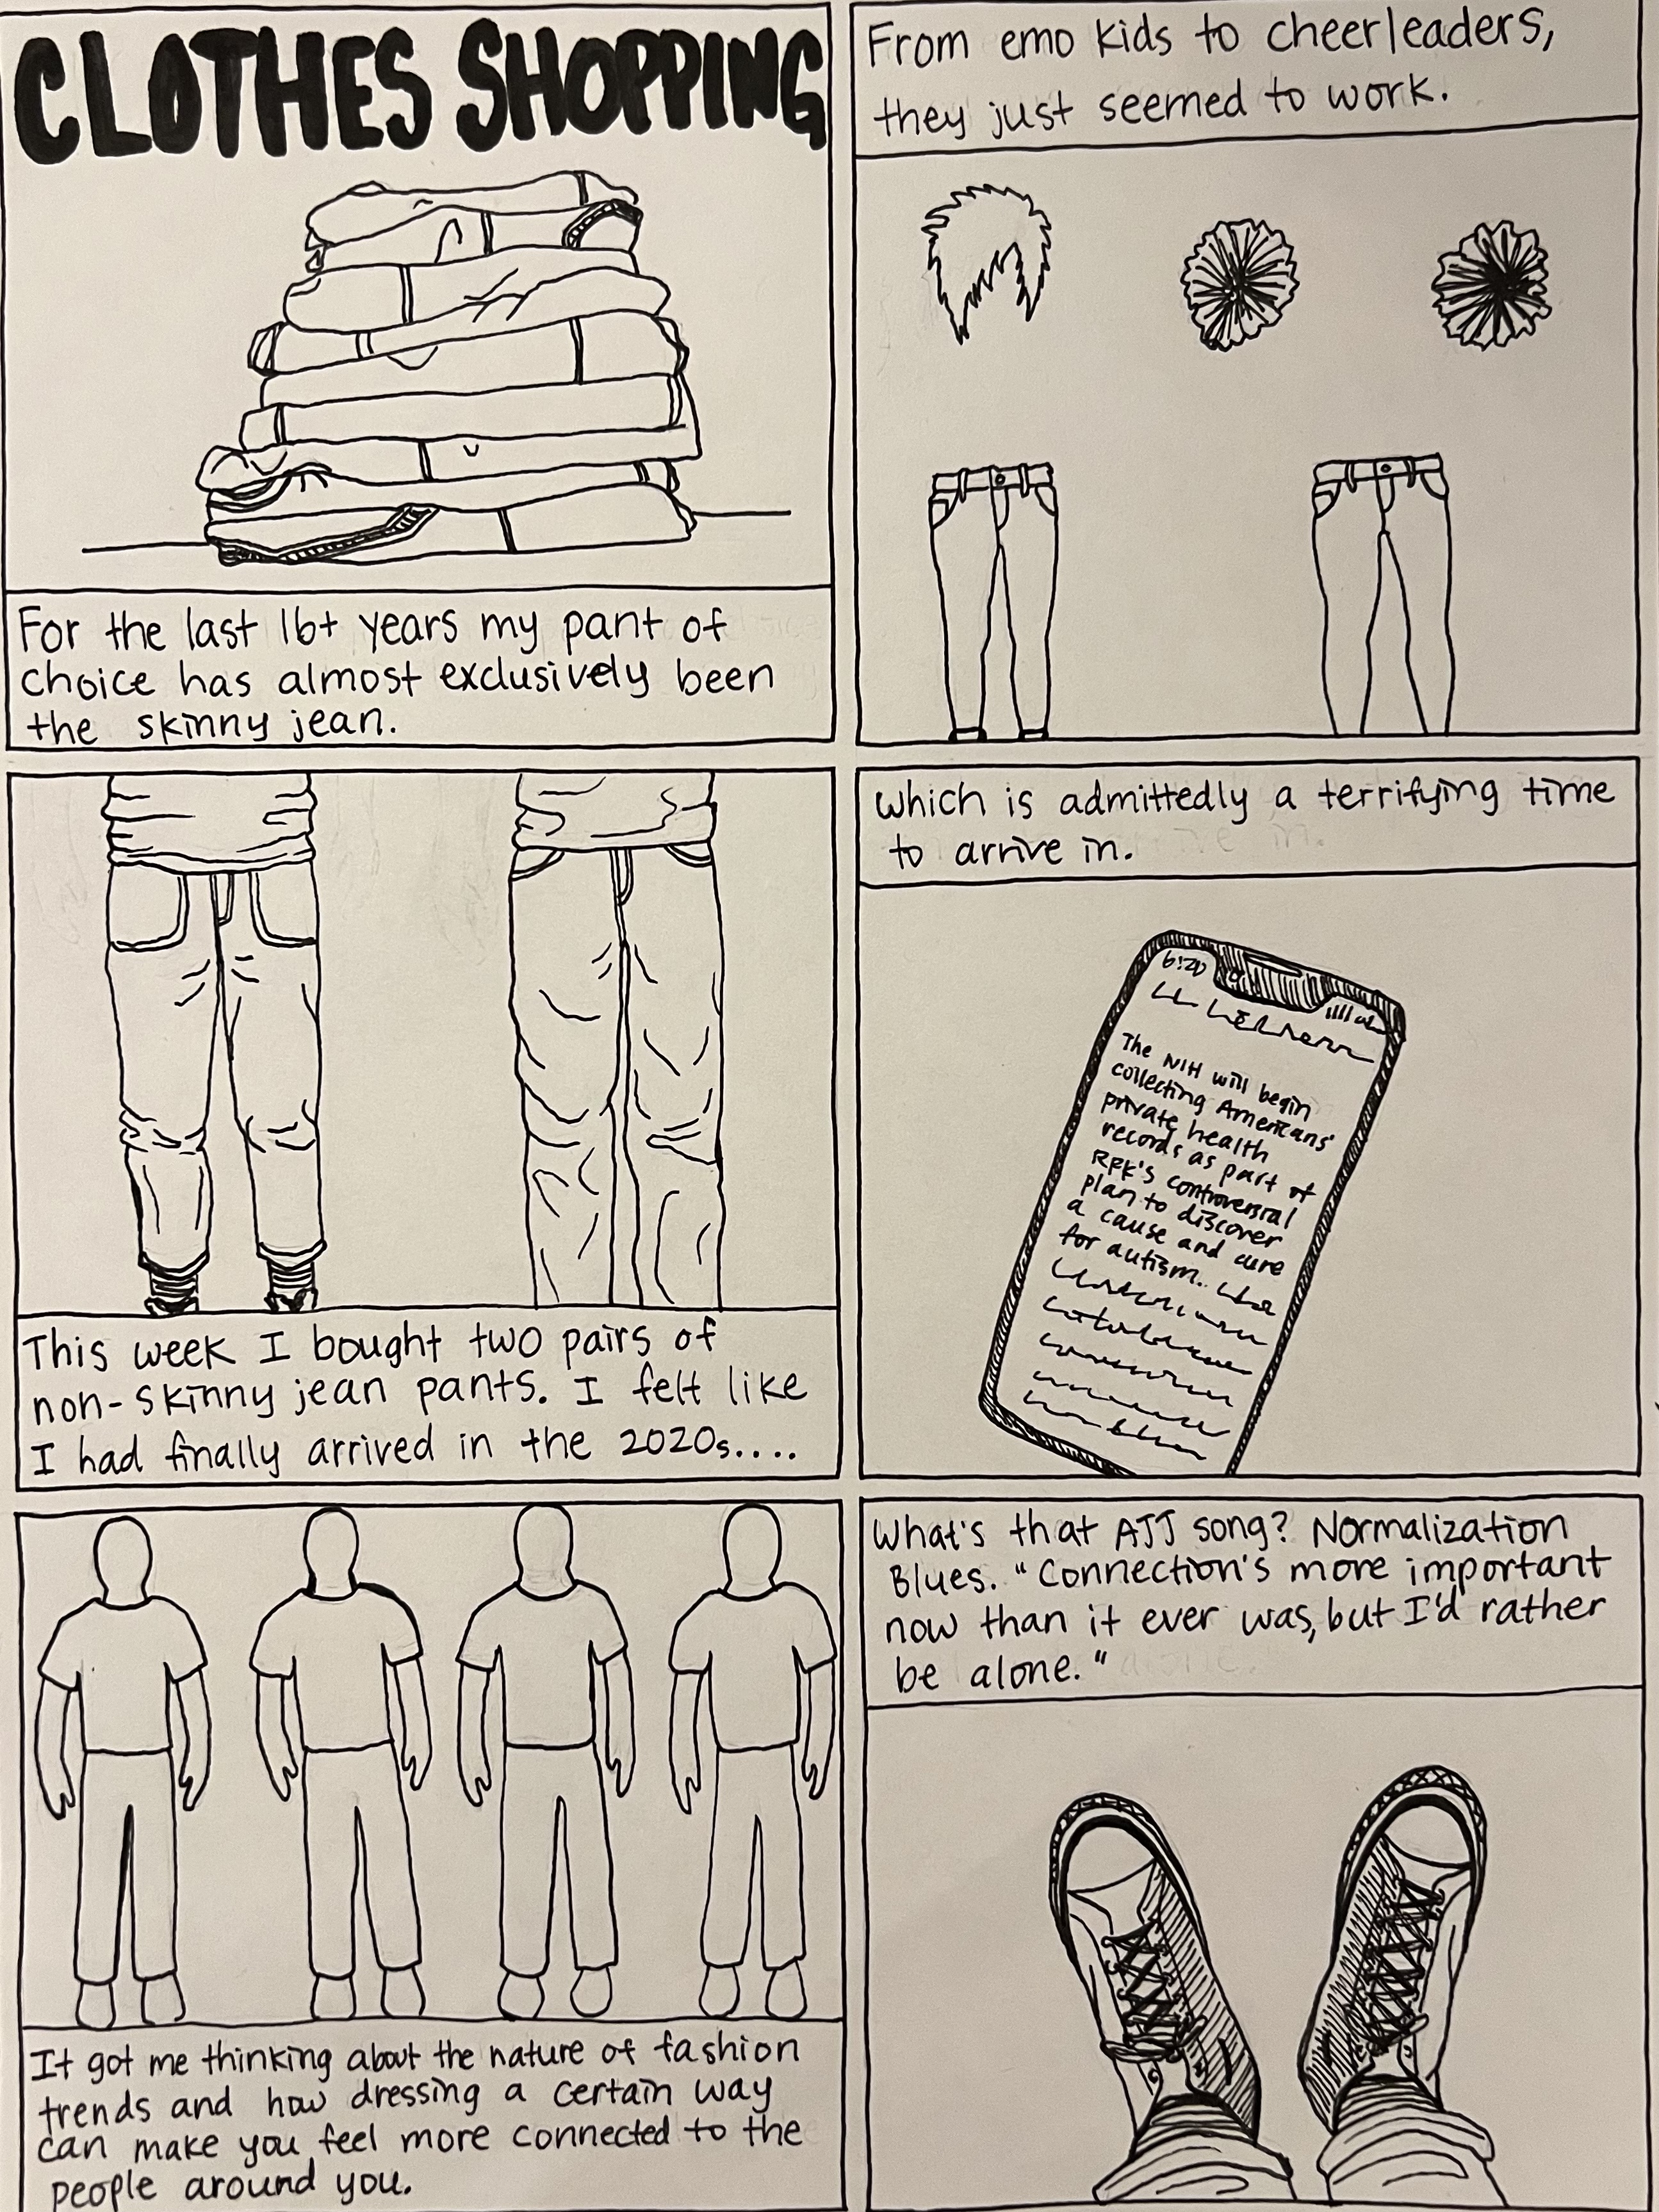 CLOTHES SHOPPING
For the last 16+ years my pant of
choice has almost exclusively been
the skinny jean.
From emo kids to cheerleaders,
they just seemed to work.
This week I bought two pairs of
non-skinny jean pants. I felt like
I had finally arrived in the 2020s....
which is admittedly a terrifying time
to arrive in.
6:20
The NIH will begin
collecting Americans'
private health
records as part of
RFK's controversial
plan to discover
a cause and cure
for autism..
It got me thinking about the nature of fashion
trends and how dressing a certain way
can make you feel more connected to the
people around you.
What's that AJJ song? Normalization
Blues. "Connection's more important
now than it ever was, but I'd rather
be alone."